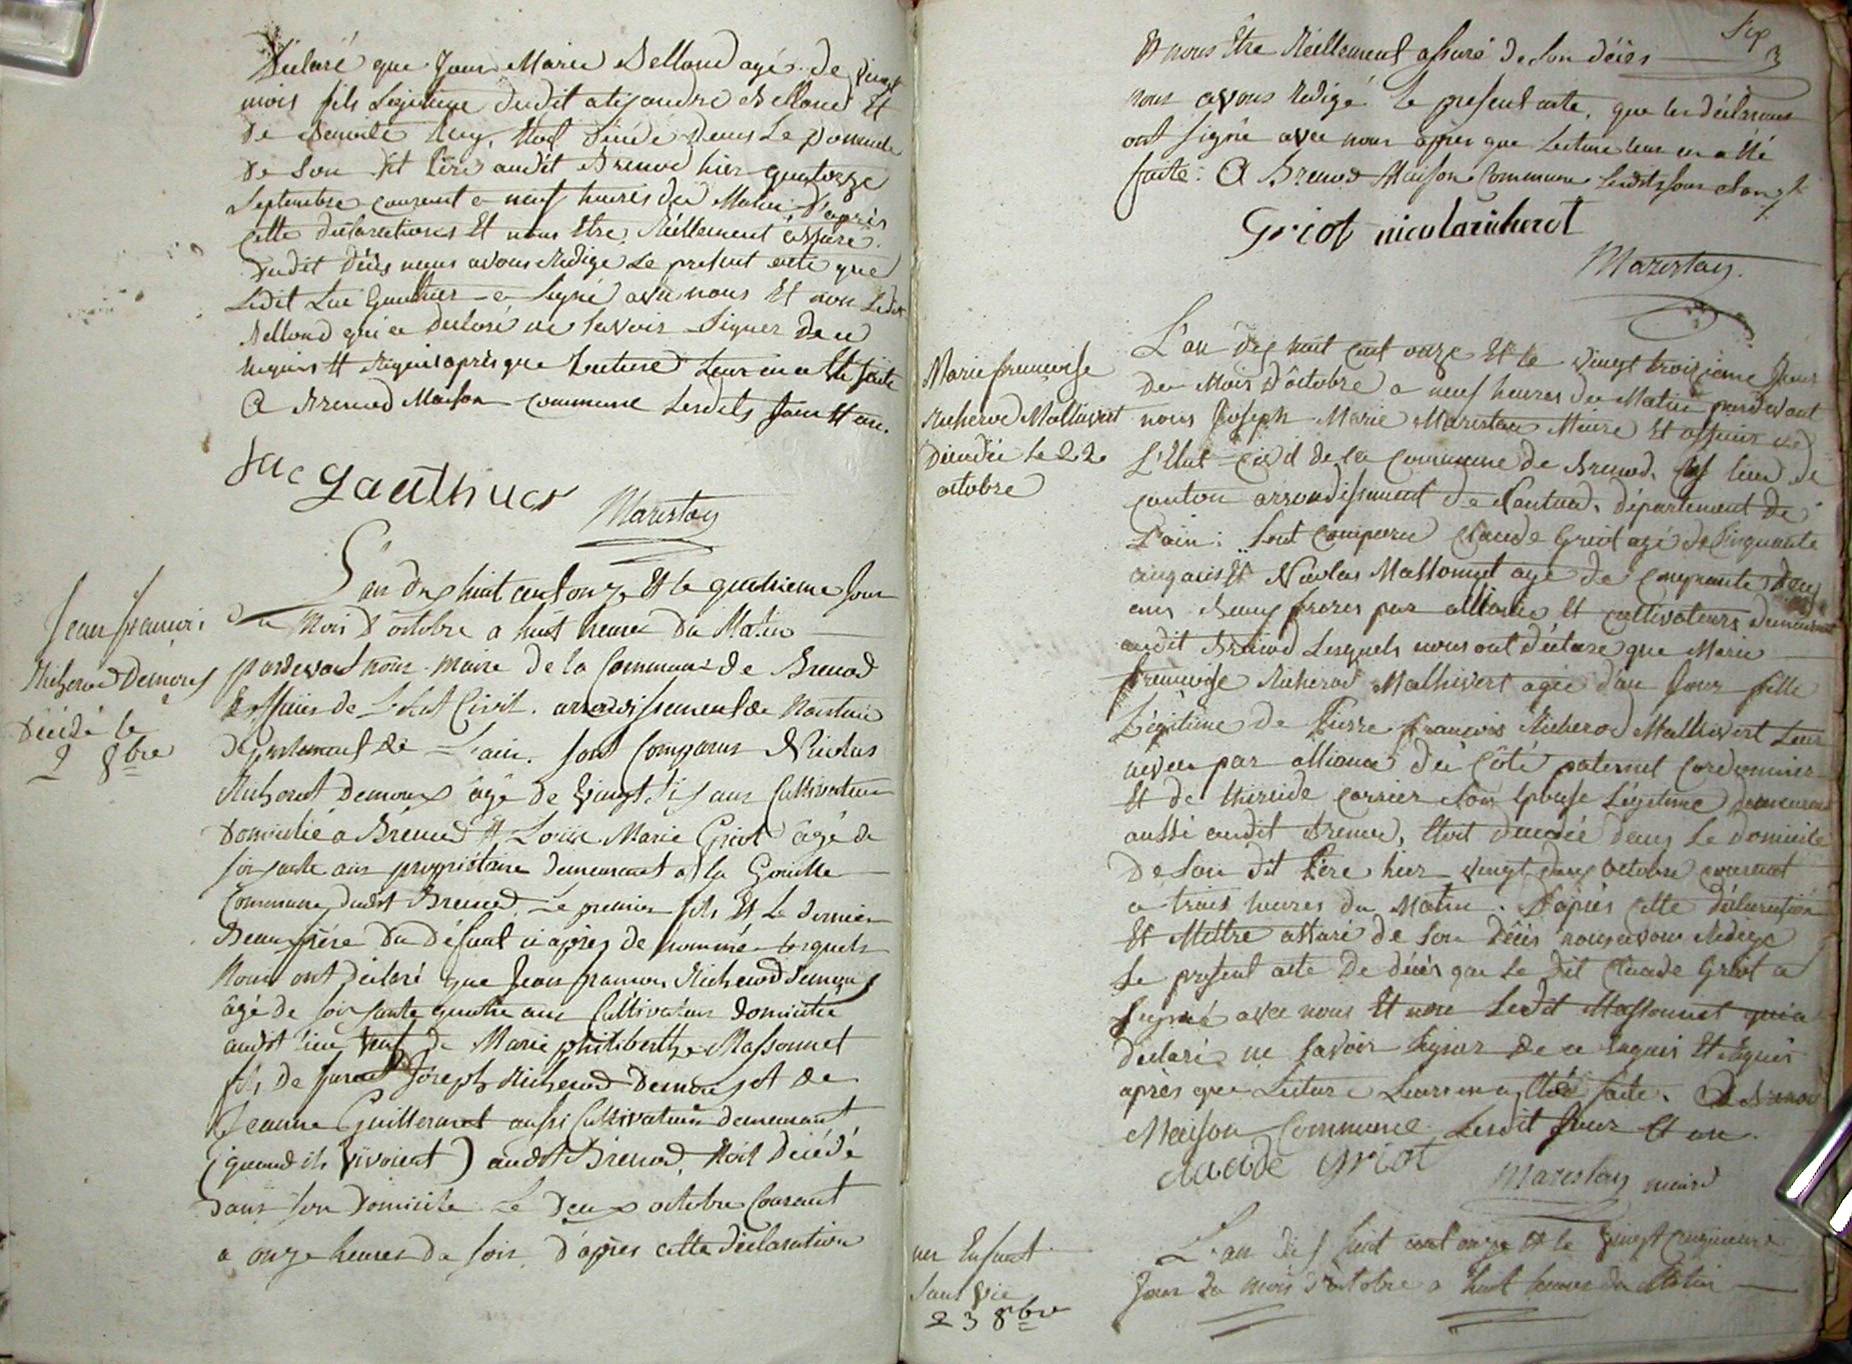 Déclaré que Jean Marie Belloud agé de Vingt
mois fils Legitime dudit Belloud Et
de Benoite Etoit Décédé Dans Le Domicile
De Son dit Père audit Brenod hier quatorze
Septembre courant a neuf heures du Matin D'après
cette déclarations Et nous Etre Réellement assuré
Dudit Décès nous avons Rédigé Le présent acte que
Ledit Luc Gauthier a Signé avec nous Et non Ledit
Belloud qui a Déclaré ne Savoir Signer De ce
Enquis Et Requis après que Lecture Leur en a Eté faite
A Brenod Maison commune Lesdits Jour Et an.
luc gauthier
Marestay
Jean françois
Richerod Demoux
Décédé le
2 8bre
L'an dix huit cent onze Et le quatrieme Jour
du Mois D'octobre a huit heures Du Matin
pardevant nous maire de la Commune de Brenod
officier de L'etat Civil. arrondissement de Nantua
département de L'ain. sont Comparus Nicolas
Richerot Demoux âgé de Vingt Six ans Cultivateur
Domicilié a Brénod Et Louis Marie Griot âgé de
soixante ans propriétaire demeurant a la Gouille
Commune dudit Brenod Le premier fils Et Le dernier
Beaufrère Du Défunt ci après de nommé Lesquels
Nous ont déclaré que Jean francois Richerod demoux
âgé de soixsante quatre ans Cultivateur domicilié
audit lieu veuf de Marie philiberthe Massonnet
fils de Joseph Richerod Demoux et de
Jeanne Guillermet aussi Cultivateurs demeurant
(quand ils Vivoient) audit Brénod Etoit Décédé
Dans son Domicile Le Deux octobre Courant
a onze heures du soir. D'après cette déclaration
Six
3
Et nous Etre Réellement assuré De Son décès
nous avons redigé le present acte, que les déclarans
ont Signé avec nous après que Lecture leur en a été
faite. A Brenod Maison Commune lesdits Jour et an
Griot nicola richerot
Marestay.
Marie françoise
Richerod Mallivert
Décédée le 22
octobre
L'an dix huit cent onze Et le Vingt troisieme Jour
du Mois d'octobre a neuf heures du Matin pardevant
nous Joseph Marie Marestay Maire Et officier de
L'Etat Civil de la Commune de Brenod, chef lieu de
canton arrondissement de Nantua, Département de
L'ain: Sont Comparu Claude Griot agé de Cinquante
cinq ans Et Nicolas Massonnet agé de Cinquante Deux
ans Beaux freres par alliance Et cultivateurs demeurant
audit Brénod Lesquels nous ont déclaré que Marie
françoise Richerod Mallivert agée d'un Jour fille
Légitime de Pierre françois Richerod Mallivert Leur
neveu par alliance du Côté paternel Cordonnier
Et de Carrier Son Epouse Légitime demeurant
aussi audit Brenod, Etoit décédée dans Le Domicile
De Son dit Père hier Vingt deux Octobre courant
a trois heures du Matin. D'après cette déclaration
Et M'etre assuré de Son Décès nous avons Rédigé
Le present acte De décès que Le Dit Claude Griot a
Signé avec nous Et non Ledit Massonnet qui a
déclaré ne Savoir Signer de ce Enquis Et Requis
après que Lecture Leurs en a Etée faite. A Brenod
Maison Commune Lesdit Jour Et an.
claude griot
Marestay maire
un Enfant
Sans Vie
23 8bre
L'an dix huit cent onze Et le Vingt cinquieme
Jour du mois d'octobre a huit heures du Matin